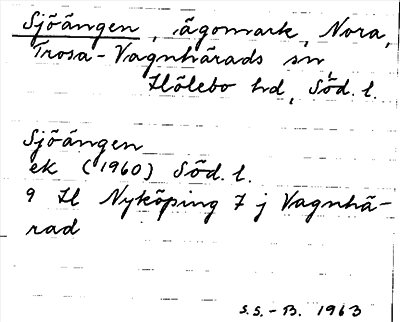 Sjöängen, ägomark, Nora,
Trosa-Vagnhärads sn
Hölebo hd, Söd. l.
Sjöängen
ek (1960) Söd. l.
9 H Nyköping 7 j Vagnhä-
rad
S.S.-B. 1963